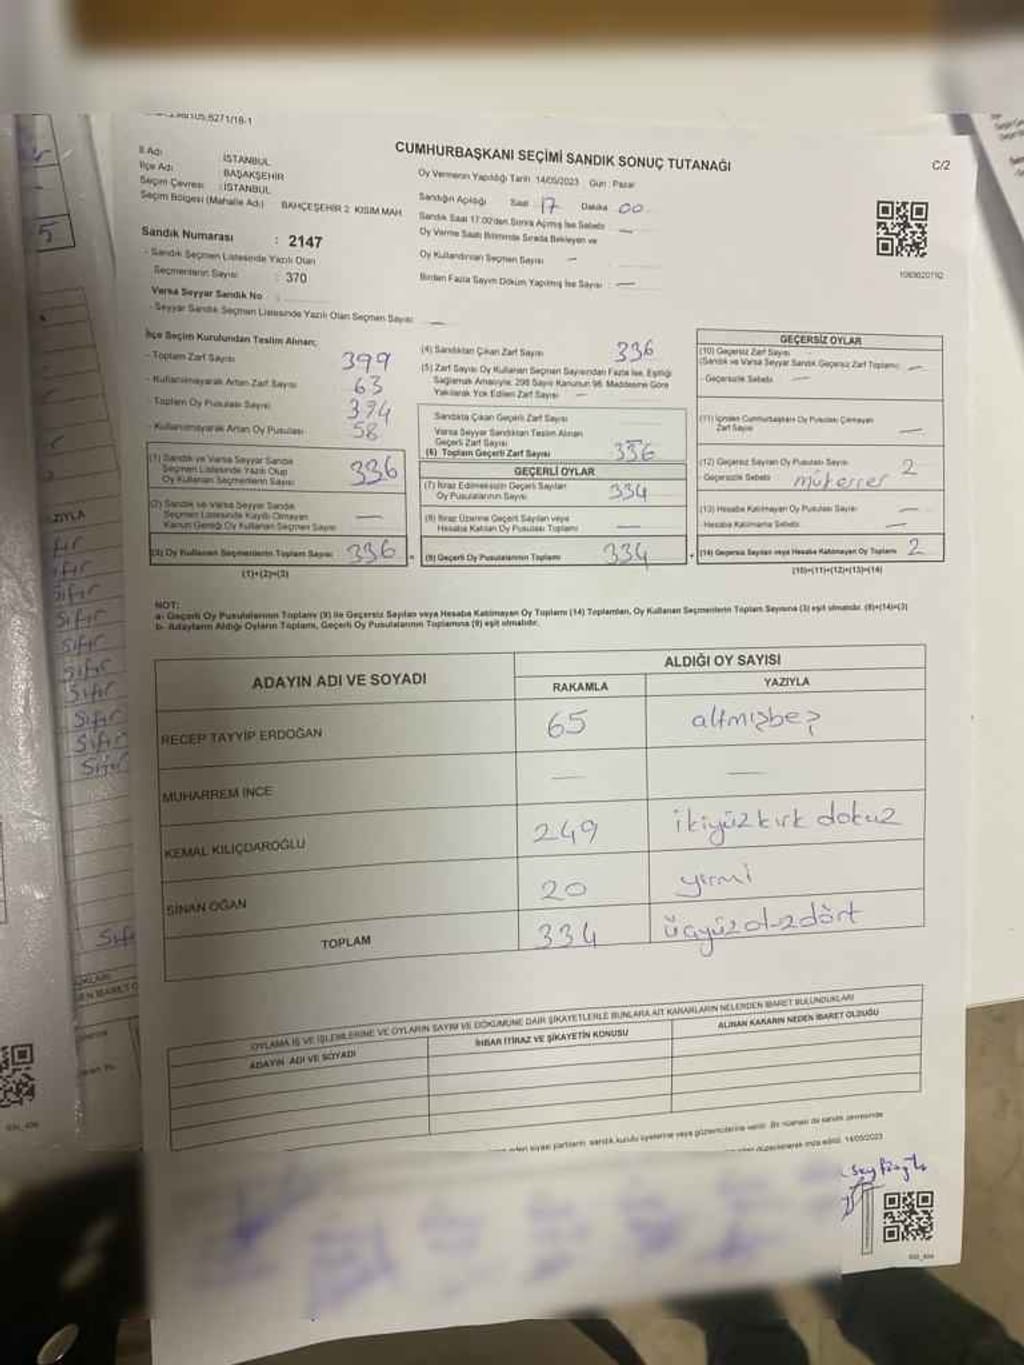 CUMHURBAŞKANI SEÇİMİ SANDIK SONUÇ TUTANAĞI
C/2
İl Adı : İSTANBUL
İlçe Adı : BAŞAKŞEHİR
Seçim Çevresi : İSTANBUL
Seçim Bölgesi (Mahalle Adı) BAHÇEŞEHİR 2. KISIM MAH.
Sandık Numarası : 2147
- Sandık Seçmen Listesinde Yazılı Olan
Seçmenlerin Sayısı : 370
Varsa Seyyar Sandık No :
- Seyyar Sandık Seçmen Listesinde Yazılı Olan Seçmen Sayısı —
Oy Vermenin Yapıldığı Tarih 14/05/2023 Gün : Pazar
Sandığın Açıldığı Saat 17 Dakika 00
Sandık Saat 17.00'den Sonra Açılmış İse Sebebi —
Oy Verme Saati Bitiminde Sırada Bekleyen ve
Oy Kullandırılan Seçmen Sayısı —
Birden Fazla Sayım Döküm Yapılmış İse Sayısı : —
1069020792
İlçe Seçim Kurulundan Teslim Alınan;
- Toplam Zarf Sayısı 399
- Kullanılmayarak Artan Zarf Sayısı 63
- Toplam Oy Pusulası Sayısı 394
- Kullanılmayarak Artan Oy Pusulası 58
(1) Sandık ve Varsa Seyyar Sandık
Seçmen Listesinde Yazılı Olup
Oy Kullanan Seçmenlerin Sayısı 336
(2) Sandık ve Varsa Seyyar Sandık
Seçmen Listesinde Kayıtlı Olmayan
Kanun Gereği Oy Kullanan Seçmen Sayısı —
(3) Oy Kullanan Seçmenlerin Toplam Sayısı 336
(1)+(2)=(3)
(4) Sandıktan Çıkan Zarf Sayısı 336
(5) Zarf Sayısı Oy Kullanan Seçmen Sayısından Fazla İse, Eşitliği
Sağlamak Amacıyla, 298 Sayılı Kanunun 98. Maddesine Göre
Yakılarak Yok Edilen Zarf Sayısı —
Sandıkta Çıkan Geçerli Zarf Sayısı
Varsa Seyyar Sandıktan Teslim Alınan
Geçerli Zarf Sayısı —
(6) Toplam Geçerli Zarf Sayısı 336
GEÇERLİ OYLAR
(7) İtiraz Edilmeksizin Geçerli Sayılan
Oy Pusulalarının Sayısı 334
(8) İtiraz Üzerine Geçerli Sayılan veya
Hesaba Katılan Oy Pusulası Toplamı —
(9) Geçerli Oy Pusulalarının Toplamı 334
GEÇERSİZ OYLAR
(10) Geçersiz Zarf Sayısı
(Sandık ve Varsa Seyyar Sandık Geçersiz Zarf Toplamı) —
- Geçersizlik Sebebi —
(11) İçinden Cumhurbaşkanı Oy Pusulası Çıkmayan
Zarf Sayısı —
(12) Geçersiz Sayılan Oy Pusulası Sayısı 2
- Geçersizlik Sebebi mükerrer
(13) Hesaba Katılmayan Oy Pusulası Sayısı —
- Hesaba Katılmama Sebebi —
(14) Geçersiz Sayılan veya Hesaba Katılmayan Oy Toplamı 2
(10)+(11)+(12)+(13)=(14)
NOT:
a- Geçerli Oy Pusulalarının Toplamı (9) ile Geçersiz Sayılan veya Hesaba Katılmayan Oy Toplamı (14) Toplamları, Oy Kullanan Seçmenlerin Toplam Sayısına (3) eşit olmalıdır. (9)+(14)=(3)
b- Adayların Aldığı Oyların Toplamı, Geçerli Oy Pusulalarının Toplamına (9) eşit olmalıdır.
ADAYIN ADI VE SOYADI
ALDIĞI OY SAYISI
RAKAMLA YAZIYLA
RECEP TAYYİP ERDOĞAN 65 altmışbeş
MUHARREM İNCE — —
KEMAL KILIÇDAROĞLU 249 ikiyüzkırk dokuz
SİNAN OĞAN 20 yirmi
TOPLAM 334 üçyüzotuzdört
OYLAMA İŞ VE İŞLEMLERİNE VE OYLARIN SAYIM VE DÖKÜMÜNE DAİR ŞİKAYETLERLE BUNLARA AİT KARARLARIN NELERDEN İBARET BULUNDUKLARI
ADAYIN ADI VE SOYADI İHBAR İTİRAZ VE ŞİKAYETİN KONUSU ALINAN KARARIN NEDEN İBARET OLDUĞU
14/05/2023
5
ZIYLA
Sıfır
Sıfır
Sıfır
Sıfır
Sıfır
Sıfır
Sıfır
Sıfır
Sıfır